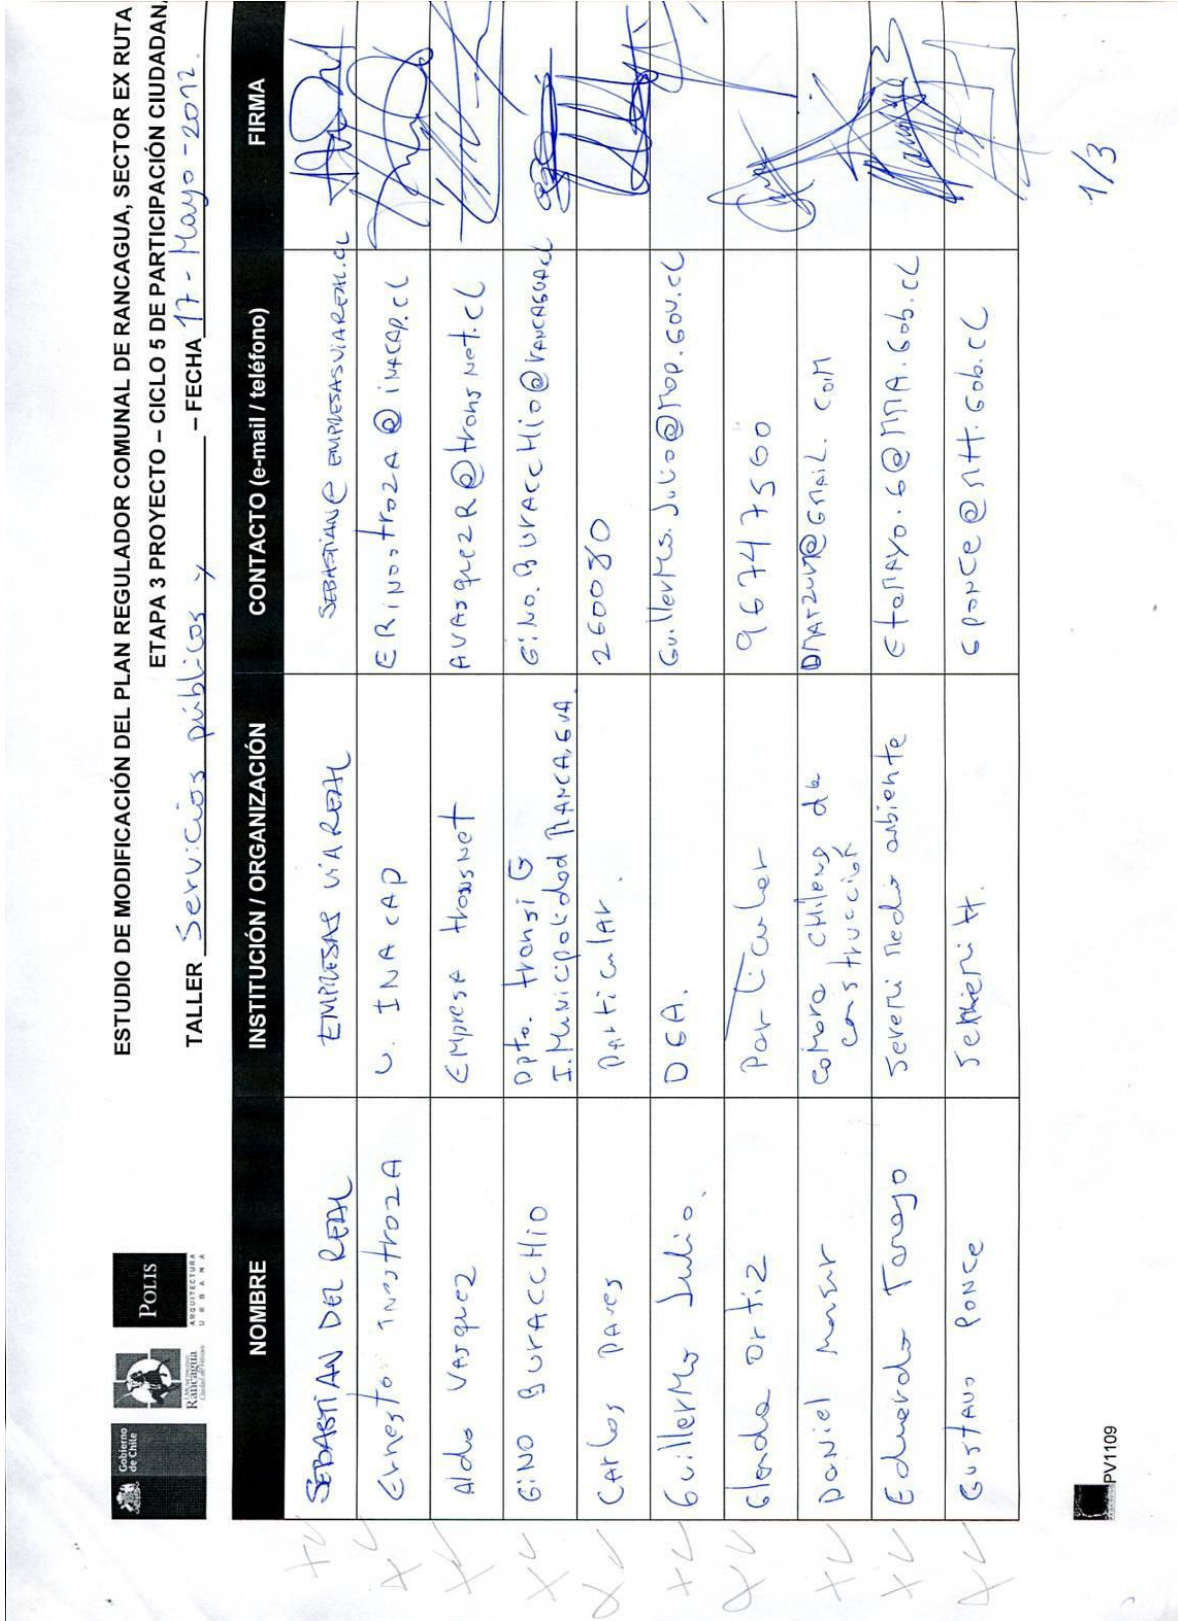 Gobierno
de Chile
Rancagua
POLIS
ARQUITECTURA
URBANA
ESTUDIO DE MODIFICACIÓN DEL PLAN REGULADOR COMUNAL DE RANCAGUA, SECTOR EX RUTA
ETAPA 3 PROYECTO – CICLO 5 DE PARTICIPACIÓN CIUDADAN
TALLER Servicios públicos y – FECHA 17 - Mayo - 2012.
NOMBRE INSTITUCIÓN / ORGANIZACIÓN CONTACTO (e-mail / teléfono) FIRMA
SEBASTIAN DEL REAL EMPRESAS VIA REAL SEBASTIAN@EMPRESASVIAREAL.CL
Ernesto Inostroza U. INACAP ERinostroza@inacap.cl
Aldo Vasquez Empresa transnet AVASquezR@transnet.cl
Gino Buracchio Dpto. transi G
I. Municipalidad RANCAGUA. Gino.Buracchio@rancagua.cl
Carlos Paves Particular. 260080
Guillermo Julio. DGA. Guillermo.Julio@mop.gov.cl
Glenda Ortiz Particular 96747560
Daniel Marur Camara Chilena de
construcción @Gmail.com
Eduardo Tamayo Seremi Medio ambiente Etamayo.6@MMA.gob.cl
Gustavo Ponce Seremitt. gponce@mtt.gob.cl
1/3
PV1109